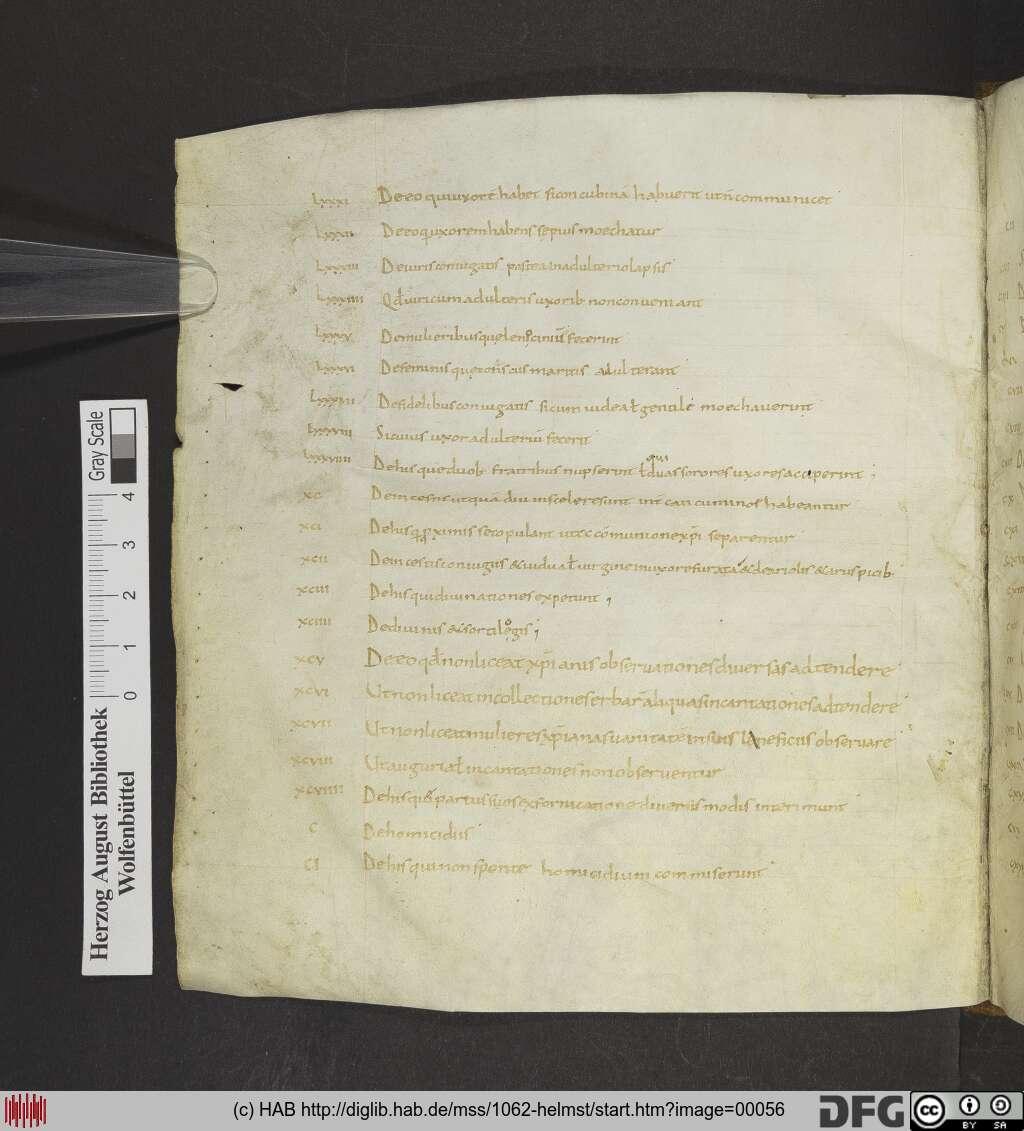 lxxxi De eo qui uxorē habet si concubinā habuerit ut n̄ communicet
lxxxii De eo qui uxorem habens sepius moechatur
lxxxiii De uiris coniugatis postea in adulterio lapsis
lxxxiiii Qđ uiri cum adulteris uxorib non conueniant
lxxxv De mulieribus que lenocinium fecerint
lxxxvi De feminis que
 suis maritis adulterant
lxxxvii De fidelibus coniugatis si cum iudea ł gentile moechauerint
lxxxviii Si cuius uxor adulteriū fecerit
lxxxviiii De his que duob fratribus nupserint ł qui duas sorores uxores acciperint ;
xc De incestis ut quā diu in scelere sunt int caticuminos habeantur
xci De his q proximis se copulant ut sc communione xp̄i separentur
xcii De incestis coniugiis & uidua ł uirgine in uxore furata & de ariolis & aruspicib
xciii De his qui diuinationes expetunt ;
xciiii De diuinis & sortilegis ;
xcv De eo qđ non liceat xp̄ianis obseruationes diuersas adtendere
xcvi Ut non liceat in collectione serbarū aliquas incantationes adtendere
xcvii Ut non liceat mulieres xp̄ianas uanitate in suis laneficiis obseruare
xcviii Ut auguria ł incantationes non obseruentur
xcviiii De his qui partus suos ex fornicatione diuersis modis interimunt
c De homicidiis
ci De his qui non sponte homicidium commiserunt
Gray Scale
4 3 2 1 0
Herzog August Bibliothek
Wolfenbüttel
(c) HAB http://diglib.hab.de/mss/1062-helmst/start.htm?image=00056
DFG
cc BY SA